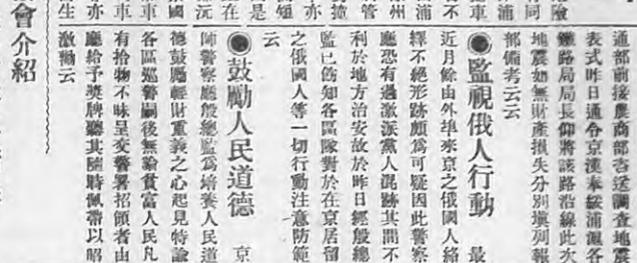 通部前接農商部咨送調查地震
表式昨日通令京漢奉綏浦滬各
鐵路局局長仰將該路沿線此次
地震如無財產損失分別填列報
部備考云云
●監視俄人行動 最
近月餘由外埠來京之俄國人絡
繹不絕形跡頗爲可疑因此警察
廳恐有過激派黨人混跡其間不
利於地方治安故於昨日經殷總
監已飭知各區隊對於在京居留
之俄國人等一切行動注意防範
云
●鼓勵人民道德 京
師警察廳殷總監爲培養人民道
德鼓勵輕財重義之心起見特諭
各區巡警嗣後無論貧富人民凡
有拾物不昧呈交警署招領者由
廳給予獎牌聽其隨時佩帶以昭
激勵云
會介紹